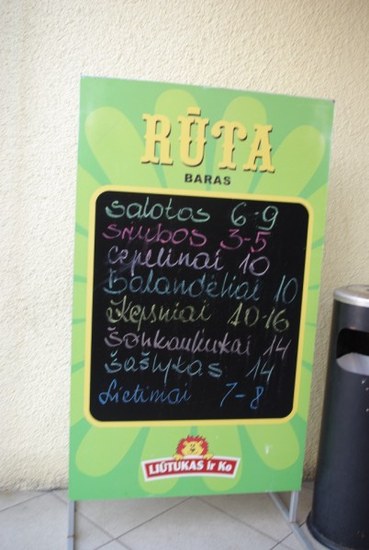 RŪTA
BARAS
salotos 6-9
sriubos 3-5
cepelinai 10
balandėliai 10
Kepsniai 10-16
šonkauliukai 14
šašlykas 14
Lietiniai 7-8
LIŪTUKAS ir Ko